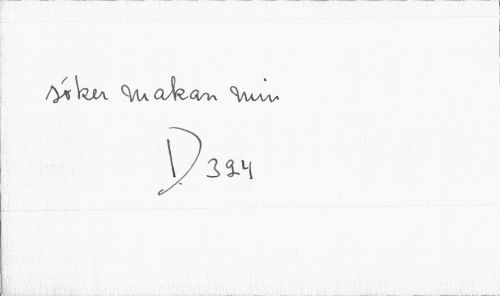 söker makan min
D 394